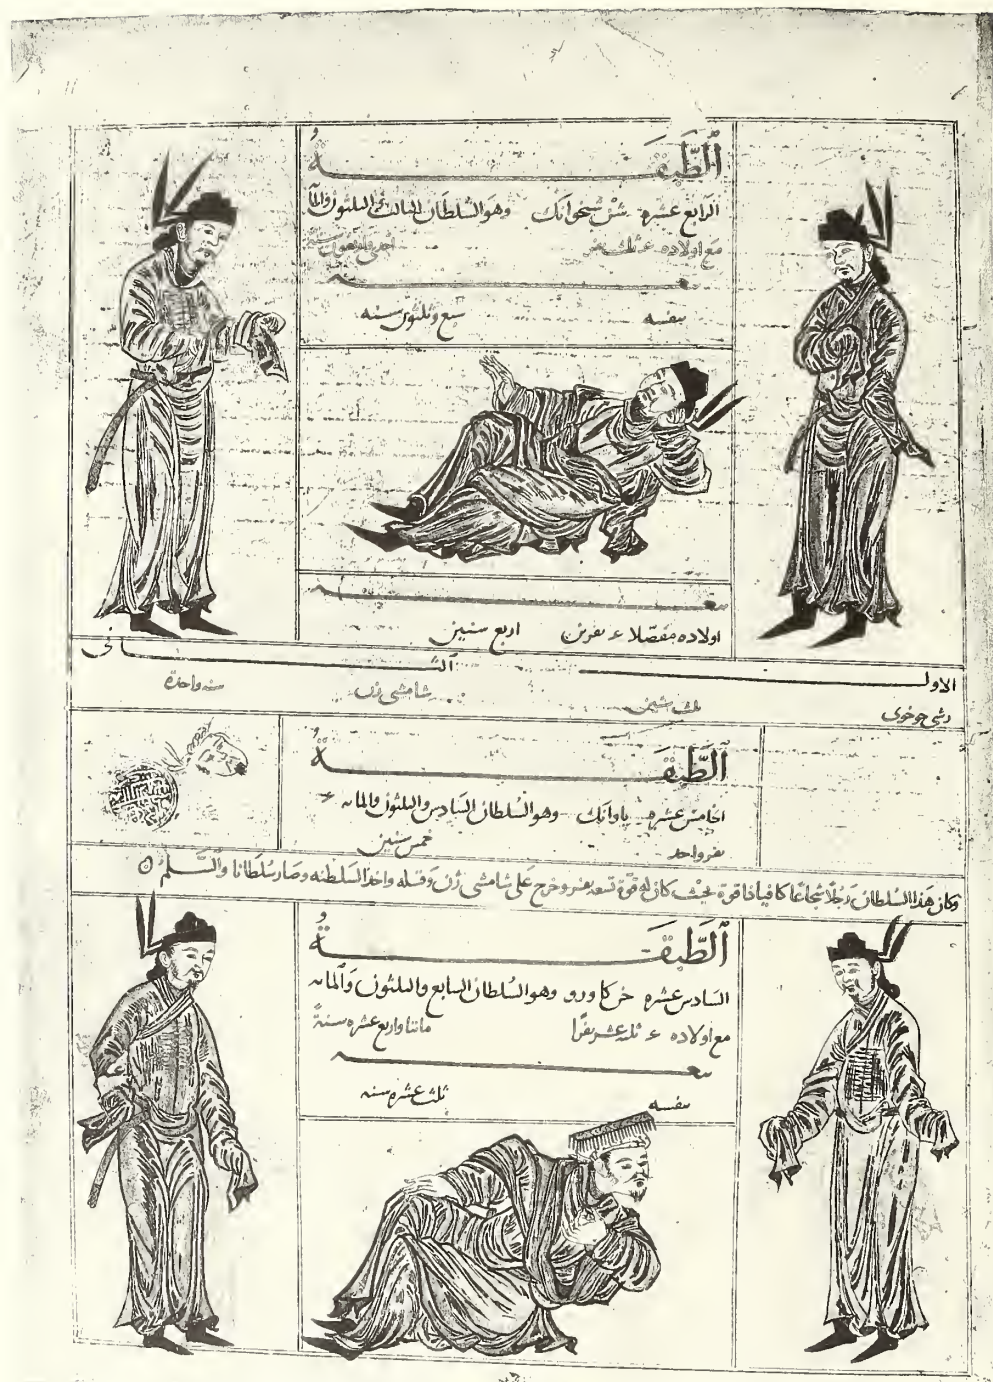 الطبقة
الرابع عشره شن شخوانك وهو السلطان الثالث والثلثون والمائه
مع اولاده ثلث نفر احدى واربعون سنة
بنفسه سبع وثلثون سنه
اولاده مفصلا نفرين اربع سنين
الاول الثانى
ثلث سنين شامشى ژن سنه واحدة
الطبقة
الخامس عشره ياوانك وهو السلطان السادس والثلثون والمائه
نفر واحد خمس سنين
وكان هذا السلطان رجلا شجاعا كافيا ذا قوة بحيث كان له قوة تسعة نفر وخرج على شامشى ژن وقتله واخذ السلطنه وصار سلطانا والسلم
الطبقة
السادس عشره خن كاورو وهو السلطان السابع والثلثون والمائه
مع اولاده ثلثه عشر نفرا مائتا واربع عشره سنة
بنفسه ثلث عشره سنه